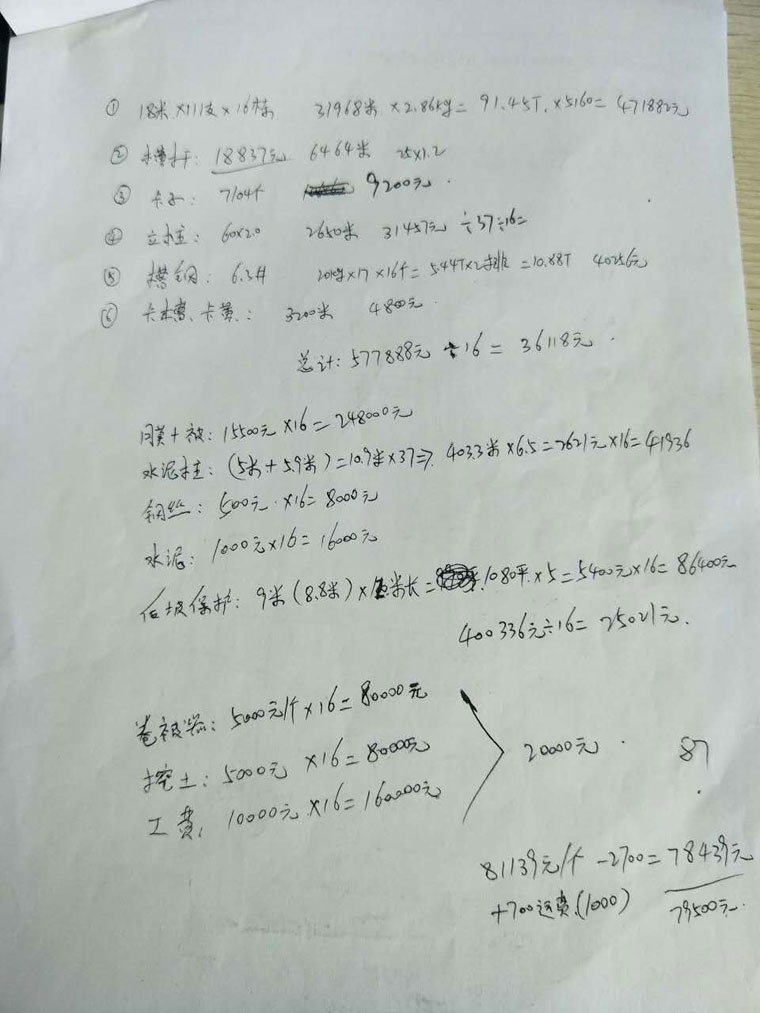 ① 18米×111支×16栋 31968米×2.86kg=91.45T.×5160=471882元
② 横杆: 18837元 6464米 25×1.2
③ 卡子: 7104个 9200元.
④ 立柱: 60×20 2650米 31457元 ÷37÷16=
⑤ 槽钢: 6.3# 20kg×17×16个=5.44T×2排=10.88T 40256元
⑥ 卡槽、卡簧: 3200米 4800元.
总计: 577888元÷16=36118元.
膜+被: 15500元×16=248000元
水泥柱: (5米+5.9米)=10.9米×37=403.3米×6.5=2621元×16=41936
钢丝: 500元.×16=8000元
水泥: 1000元×16=16000元
后坡保护: 9米(8.8米)×米长=1080平.×5=5400元×16=86400元
400336元÷16=25021元.
卷被器: 5000元/个×16=80000元
挖土: 5000元×16=80000元
20000元.
87
工费: 10000元×16=160000元
81139元/个-2700=78439元
+700运费.(1000) 79500元.